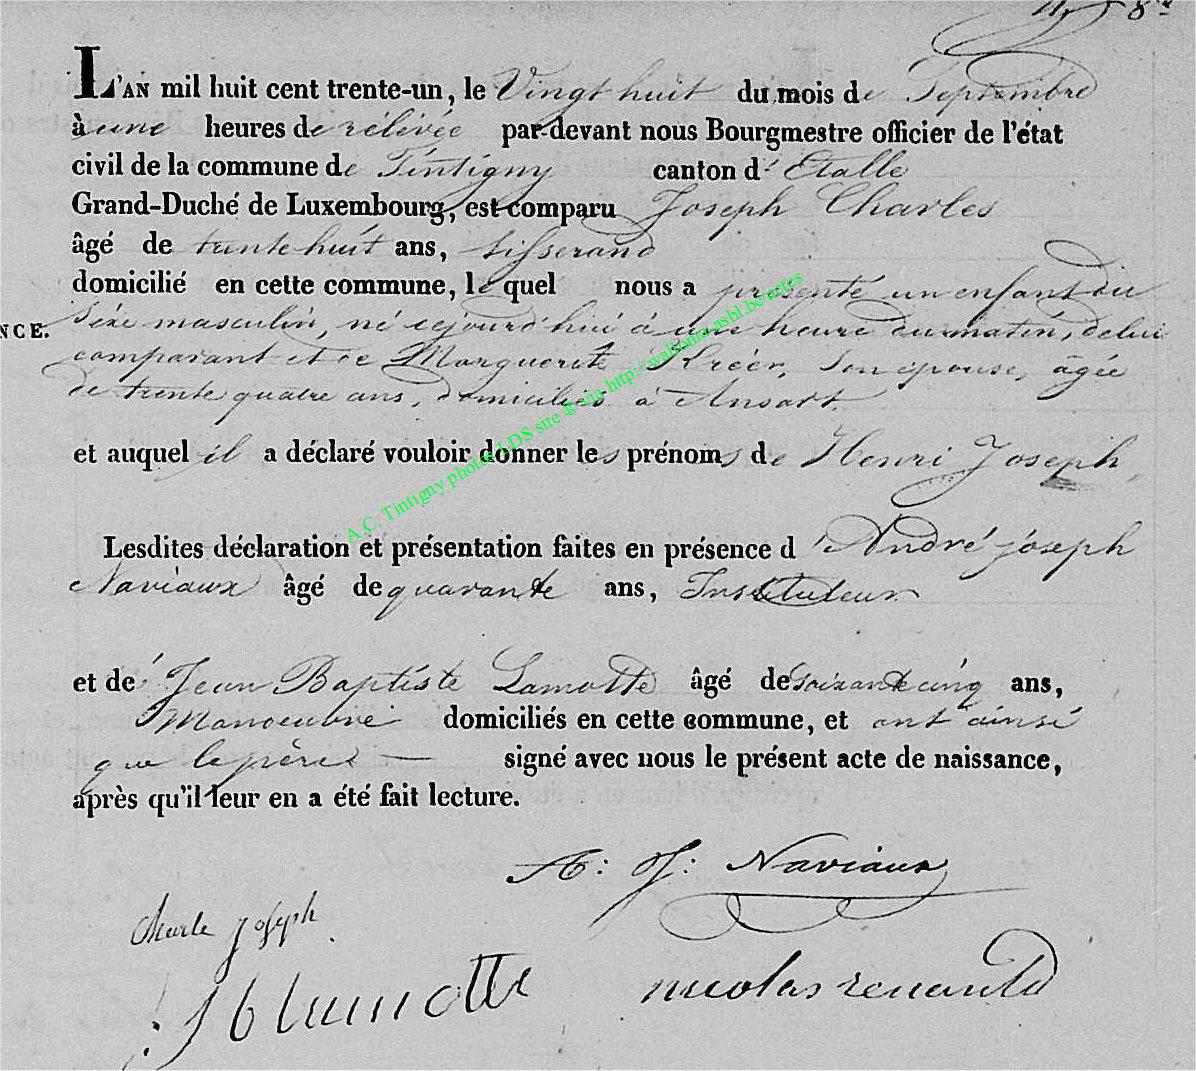 L'AN mil huit cent trente-un, le Vingt huit du mois de Septembre
à une heures de rélévée par-devant nous Bourgmestre officier de l'état
civil de la commune de Tintigny canton d'Etalle
Grand-Duché de Luxembourg, est comparu Joseph Charles
âgé de trente huit ans, tisserand
domicilié en cette commune, le quel nous a présenté un enfant du
NCE. Séxe masculin, né cejourd'hui à une heure du matin, de lui
comparant et de Marguerite Kréer, son épouse, agée
de trente quatre ans, domiciliés à Ansart.
et auquel il a déclaré vouloir donner les prénoms de Henri Joseph,
Lesdites déclaration et présentation faites en présence d'André joseph
Naviaux âgé de quarante ans, Instituteur
et de Jean Baptiste Lamotte âgé de soixante cinq ans,
Manoeuvre domiciliés en cette commune, et ont ainsi
que le père signé avec nous le présent acte de naissance,
après qu'il leur en a été fait lecture.
A: J: Naviaux
Charle Joseph
nicolas renauld
A.C. Tintigny photos LDS site & via http://wallonia.asbl.be/actes